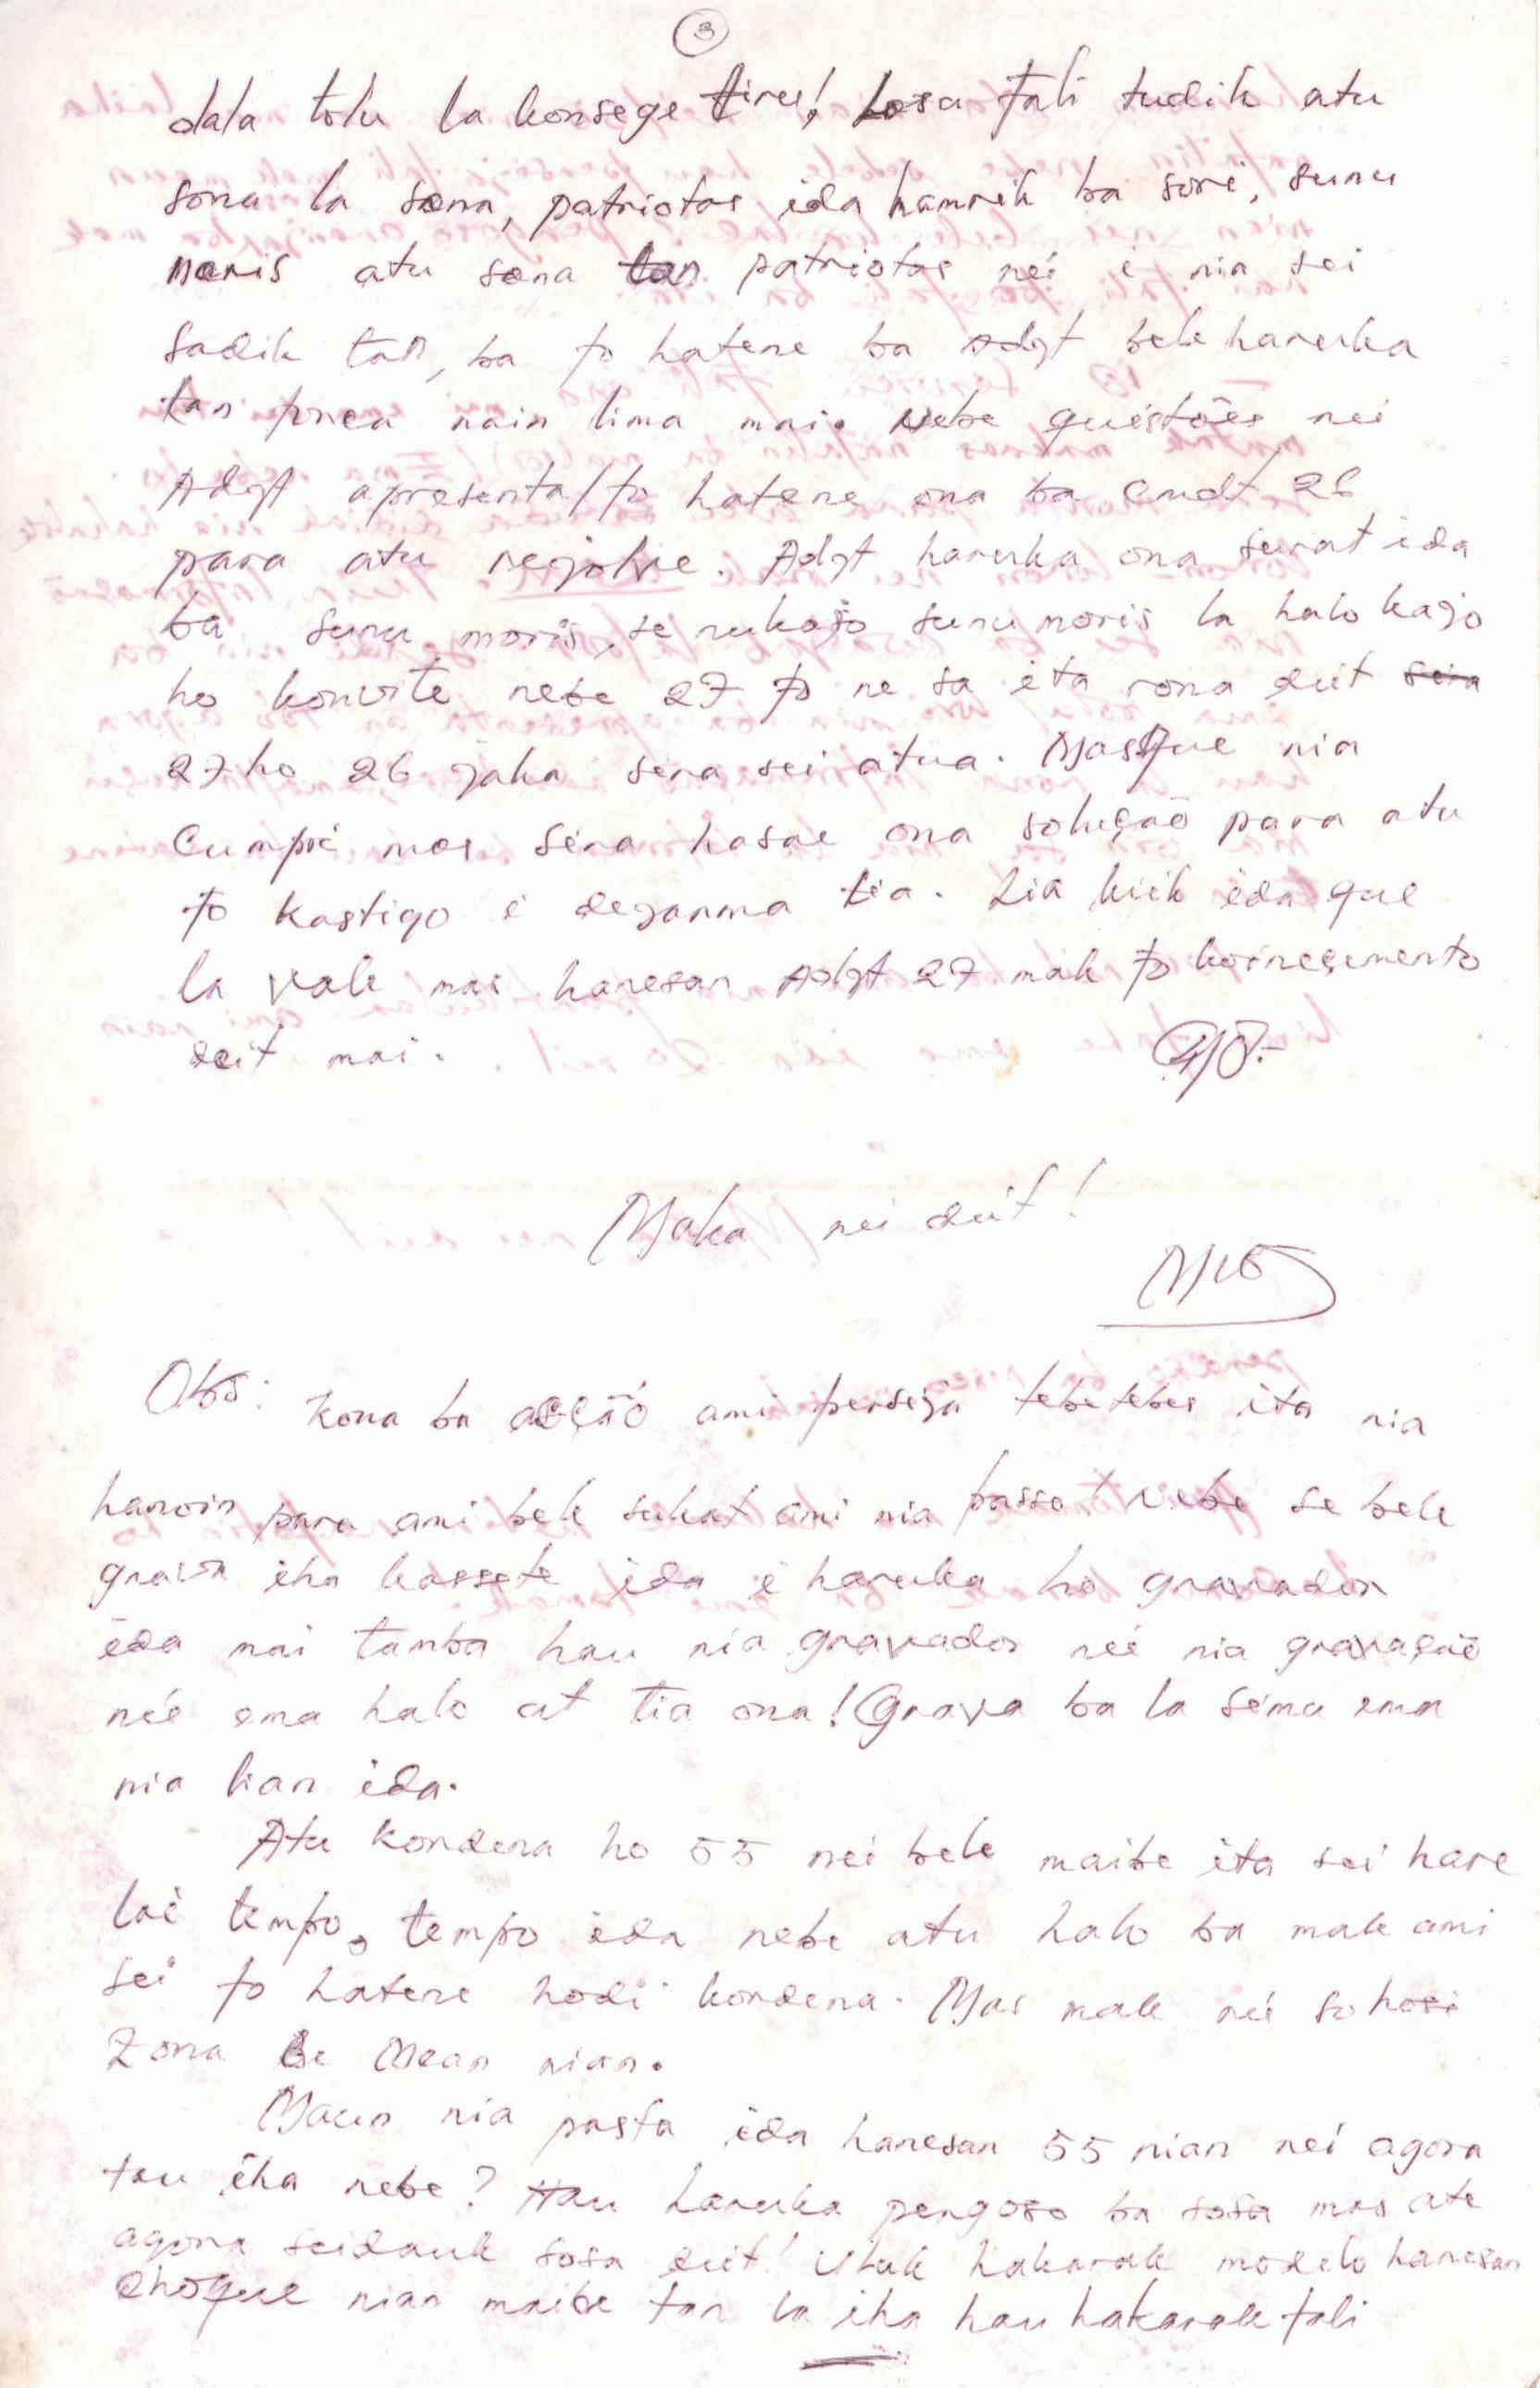 3
dala tolu la konsege tiru! Losu fali tudik atu
sona la sona, patriotas ida hamrik ba sori, sunu
moris atu sona tan patriotas nei é nia sei
sadik tan, ba fo hatene ba Adgt bele haruka
tan forca nain lima mai. Nebe questões nei
Adgt apresenta/fo hatene ona ba Cmdt 26
para atu rejolve. Adgt haruka ona surat ida
ba sunu moris, se nukojo sunu moris la halo kajo
ho konvite nebe 27 fo ne sa ita rona deit seia
27 ho 26 jaka sera sei atua. Masque nia
Cumpri mos sera hasae ona solução para atu
fo kastigo é deganma tia. Lia kiik ida que
la vale mas hanesan Adgt 27 mak fo koinecimento
deit mai.
Maka nei deit!
Obs: Kona ba acção ami persija tebetebes ita nia
hanoin para ami bele sukat ami nia passo! Nebe se bele
grava iha kassete ida é haruka ho gravador
ida mai tamba hau nia gravador neé nia gravação
neé ema halo at tia ona! Grava ba la simu ema
nia lian ida.
Atu kondena ho 55 nei bele maibe ita sei hare
lai tempo, tempo ida nebe atu halo ba mak ami
sei fo hatene hodi kondena. Mas mak neé so hosi
Zona Be Mean nian.
Maun nia pasta ida hanesan 55 nian nei agora
tau iha nebe? Hau haruka pengoso ba sosa mas ate
agora seidauk sosa deit! Uluk hakarak modelo hanesan
choque nian maibe tan la iha hau hakarak fali